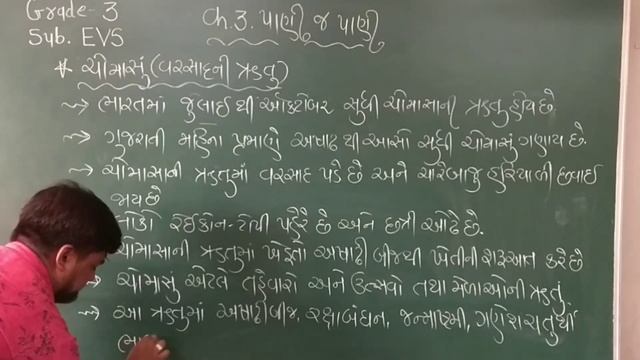 Grade - 3
Ch.3. પાણી જ પાણી
Sub. EVS
* ચોમાસું (વરસાદની ઋતુ)
→ ભારતમાં જુલાઈ થી ઓક્ટોબર સુધી ચોમાસાની ઋતુ હોય છે.
→ ગુજરાતી મહિના પ્રમાણે અષાઢ થી આસો સુધી ચોમાસું ગણાય છે.
→ ચોમાસાની ઋતુમાં વરસાદ પડે છે અને ચારેબાજુ હરિયાળી છવાઈ
જાય છે
લોકો રેઈકોન-ટોપી પહેરે છે અને છત્રી ઓઢે છે.
ચોમાસાની ઋતુમાં ખેડૂતો અષાઢી બીજથી ખેતીની શરૂઆત કરે છે
→ ચોમાસું એટલે તહેવારો અને ઉત્સવો તથા મેળાઓની ઋતુ.
→ આ ઋતુમાં અષાઢીબીજ, રક્ષાબંધન, જન્માષ્ટમી, ગણેશ ચતુર્થી